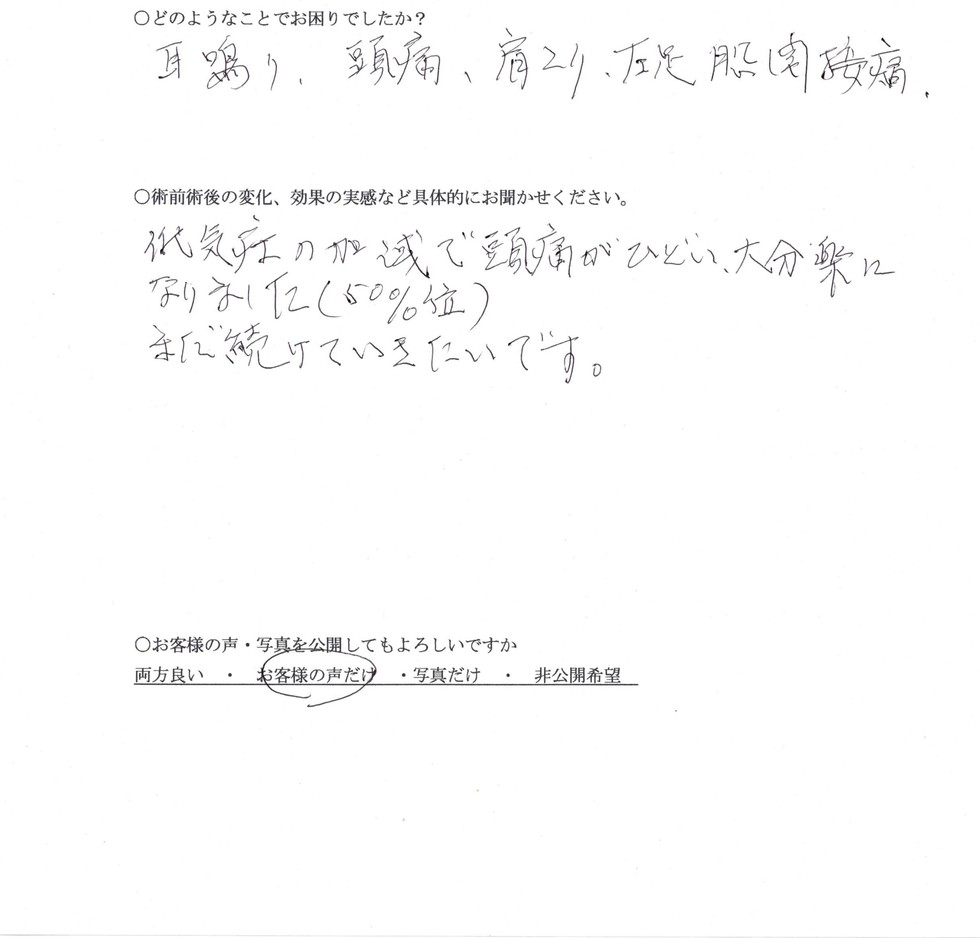 ○どのようなことでお困りでしたか？
耳鳴り、頭痛、肩こり、左足股関接痛.
○術前術後の変化、効果の実感など具体的にお聞かせください。
低気圧の加減で頭痛がひどい、大分楽に
なりました(50%位)
まだ続けていきたいです。
○お客様の声・写真を公開してもよろしいですか
両方良い ・ お客様の声だけ ・写真だけ ・ 非公開希望